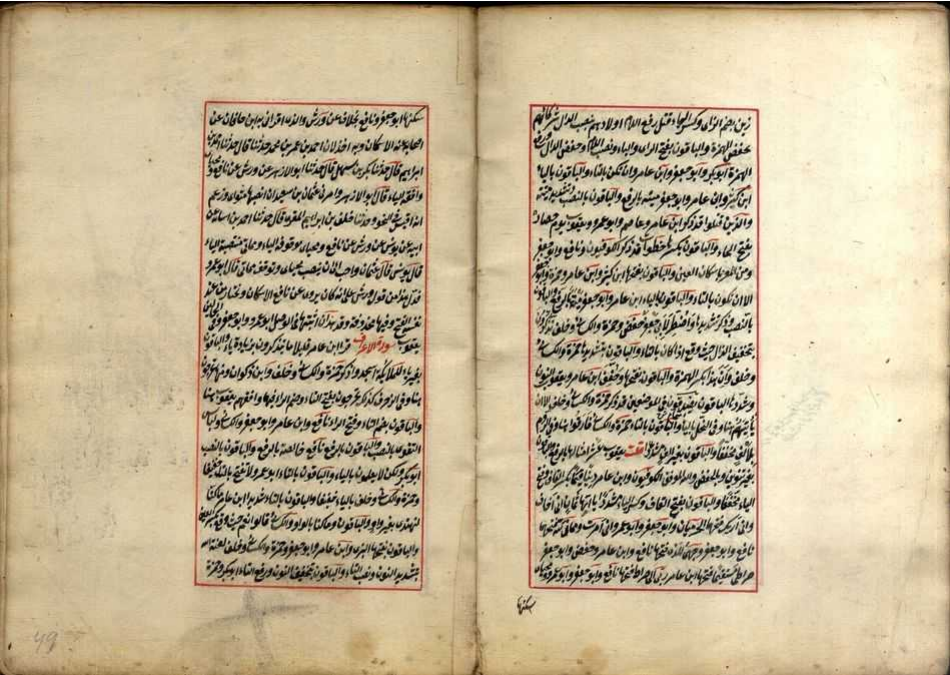 زين بضم الزاى وكسر الياء قتل برفع اللام اولادهم بنصب الدال شركائهم
بخفض الهمزة والباقون بفتح الزاى والياء ونصب اللام وخفض الدال ورفع
الهمزة ابو بكر وابو جعفر وابن عامر وان تكن بالتاء والباقون بالياء
ابن كثير وابن عامر وابو جعفر ميتة بالرفع والباقون بالنصب
والذين قتلوا قد ذكر ابن عامر وعاصم وابو عمرو ويعقوب يوم حصاده
بفتح الحاء والباقون بكسرها خطوات قد ذكر الكوفيون ونافع وابو جعفر
ومن المعز باسكان العين والباقون بفتحها ابن كثير وابن عامر وحمزة وابو جعفر
الا ان تكون بالتاء والباقون بالياء ابن عامر وابو جعفر ميتة بالرفع والباقون
بالنصب وذكر تشديد ابو جعفر حفص وحمزة والكسائى وخلف تذكرون
بتخفيف الذال حيث وقع اذا كان بالتاء والباقون بتشديدها حمزة والكسائى
وخلف وان هذا بكسر الهمزة والباقون بفتحها وخفف ابن عامر ويعقوب النون
وشددها الباقون فتفرق قد ذكر حمزة والكسائى وخلف الا ان
يأتيهم هنا وفى النحل بالياء والباقون بالتاء حمزة والكسائى فارقوا هنا وفى الروم
بالالف مخففا والباقون بغير الف مشددا قلت يعقوب عشر امثالها بالرفع
بغير تنوين وبالخفض والله الموفق الكوفيون وابن عامر دينا قيما بكسر القاف وفتح
الياء مخففا والباقون بفتح القاف وكسر الياء مشددا ياآتها ثمان انى اخاف
وانى اراك فتحهما الحرميان وابو جعفر وابو عمرو انى امرت ومماتى لله فتحهما
نافع وابو جعفر وجهى للذى فتحها نافع وابن عامر وحفص وابو جعفر
صراطى مستقيما فتحها ابن عامر ربى الى صراط فتحها نافع وابو جعفر وابو عمرو ومحياى
سكنها
سكنها ابو جعفر ونافع بخلاف عن ورش والذى اقرانى به ابن خاقان عن
اصحابه عنه الاسكان وبه اخذ لان احمد بن عمر بن محمد حدثنا قال حدثنا احمد بن
ابراهيم قال حدثنا بكر بن سهل قال حدثنا ابو الازهر عن ورش عن نافع ومحياى
واقفة الياء قال ابو الازهر وامرنى عثمان بن سعيد ان انصبها مثل مثواى وزعم
انه اقيس فى النحو وحدثنا خلف بن ابراهيم المقرى قال حدثنا احمد بن اسامة عن
ابيه عن يونس عن ورش عن نافع ومحياى موقوفة الياء ومماتى منتصبة الياء
قال يونس قال عثمان واحب الى ان ينصب محياى وتوقف مماتى قال ابو عمرو
فدل هذا من قول ورش على انه كان يروى عن نافع الاسكان ويختار من عند
نفسه الفتح وفيها محذوفة وقد هدان اثبتها فى الوصل ابو عمرو وابو جعفر وفى الحالين
يعقوب سورة الاعراف قرا ابن عامر قليلا ما يتذكرون بزيادة ياء والباقون
بغير ياء للملائكة اسجدوا ذكر حمزة والكسائى وخلف وابن ذكوان ومنها تخرجون
هنا وفى الزخرف كذلك تخرجون بفتح التاء وضم الراء فيهما وافقهم يعقوب هنا
والباقون بضم التاء وفتح الراء نافع وابن عامر وابو جعفر والكسائى ولباس
التقوى بالنصب والباقون بالرفع نافع خالصة بالرفع والباقون بالنصب
ابو بكر ولكن لا يعلمون بالياء والباقون بالتاء ابو عمرو لا تفتح بالتاء خفيفا
وحمزة والكسائى وخلف بالياء خفيفا والباقون بالتاء شديدا ابن عامر ما كنا
لنهتدى بغير واو والباقون وما كنا بالواو والكسائى قالوا نعم حيث وقع بكسر العين
والباقون بفتحها البزى وابن عامر وابو جعفر وحمزة والكسائى وخلف ان لعنة الله
بتشديد النون ونصب التاء والباقون بتخفيف النون ورفع التاء ابو بكر وحمزة
49